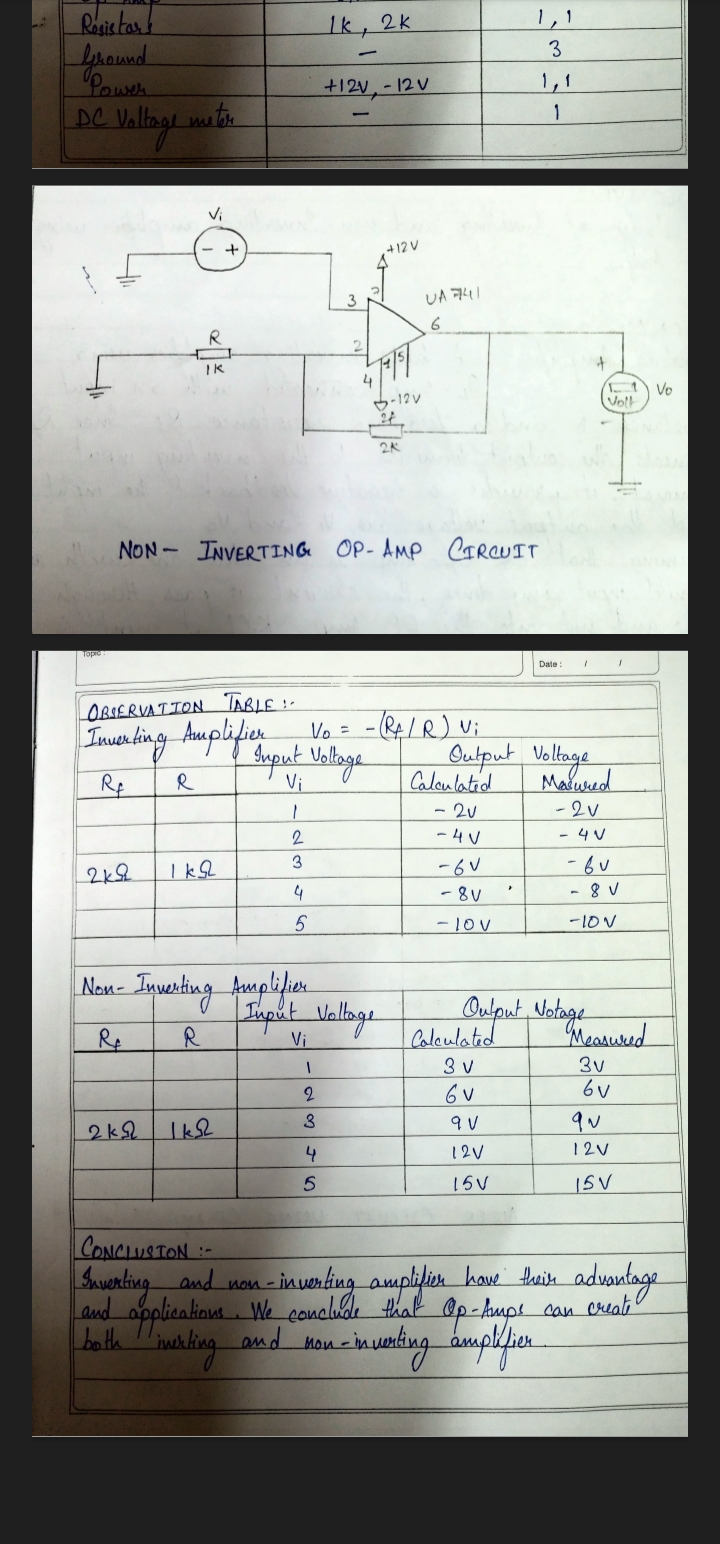 Resistors 1k, 2k 1, 1
Ground — 3
Power +12V, -12V 1, 1
DC Voltage meter — 1
Vi
- +
+12V
3 7 UA741
6
R
2
1K
1 5
4
-12V
+
Volt Vo
2K
NON- INVERTING OP-AMP CIRCUIT
Topic :
Date : / /
OBSERVATION TABLE :-
Inverting Amplifier Vo = -(Rf/R) Vi
Input Voltage Output Voltage
Rf R Vi Calculated Measured
1 -2V -2V
2 -4V -4V
2kΩ 1kΩ 3 -6V -6V
4 -8V -8V
5 -10V -10V
Non-Inverting Amplifier
Input Voltage Output Votage
Rf R Vi Calculated Measured
1 3V 3V
2 6V 6V
2kΩ 1kΩ 3 9V 9V
4 12V 12V
5 15V 15V
CONCLUSION :-
Inverting and non-inverting amplifier have their advantage
and applications. We conclude that Op-Amps can create
both inerting and non-inverting amplifier.